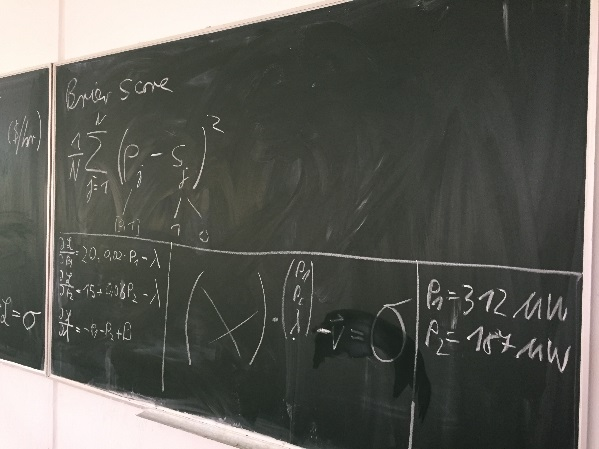 ($/hr)
L = σ
Brier Score
1/N ∑ j=1 N (P_j - S_j)^2
[0,1] 1 0
∂L/∂P₁ = 20+0,02·P₁-λ
∂L/∂P₂ = 15+0,08P₂-λ
∂L/∂λ = -P₁-P₂+P_D
( X ) · (P₁ P₂ λ) - v⃗ = σ
P₁=312 MW
P₂=187 MW